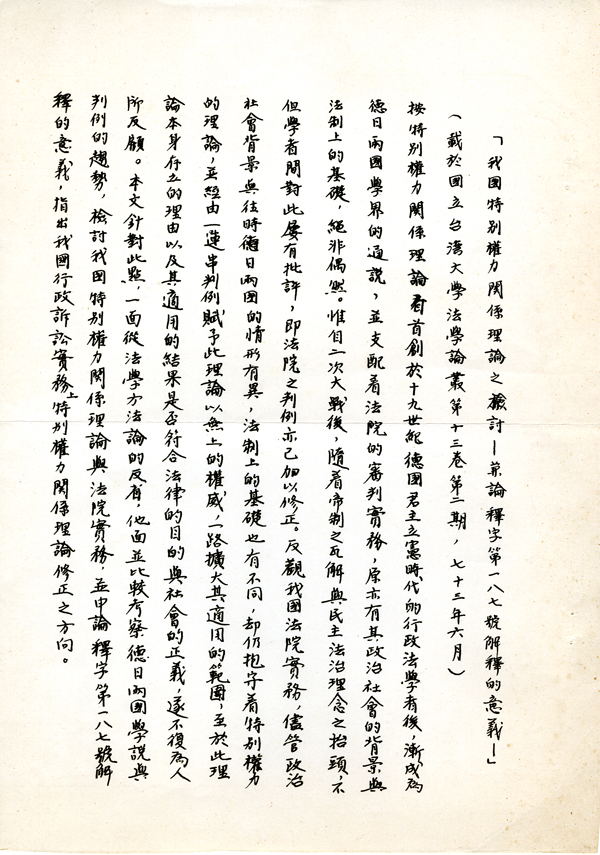 「我國特別權力關係理論之檢討—兼論釋字第一八七號解釋的意義—」
(載於國立台灣大學法學論叢第十三卷第二期，七十三年六月)
按特別權力關係理論肴首創於十九世紀德國君主立憲時代的行政法學者後，漸成為
德日兩國學界的通說，並支配着法院的審判實務，原亦有其政治社會的背景與
法制上的基礎，絕非偶然。惟自二次大戰後，隨着帝制之瓦解與民主法治理念之抬頭，不
但學者間對此屢有批評，即法院之判例亦已加以修正。反觀我國法院實務，儘管政治
社會背景與往時德日兩國的情形有異，法制上的基礎也有不同，却仍抱守着特別權力
的理論，並經由一連串判例賦予此理論以無上的權威，一路擴大其適用的範圍，至於此理
論本身存立的理由以及其適用的結果是否符合法律的目的與社會的正義，遂不復為人
所反顧。本文針對此點，一面從法學方法論的反省，他面並比較考察德日兩國學說與
判例的趨勢，檢討我國特別權力關係理論與法院實務，並申論釋字第一八七號解
釋的意義，指出我國行政訴訟實務上特別權力關係理論修正之方向。